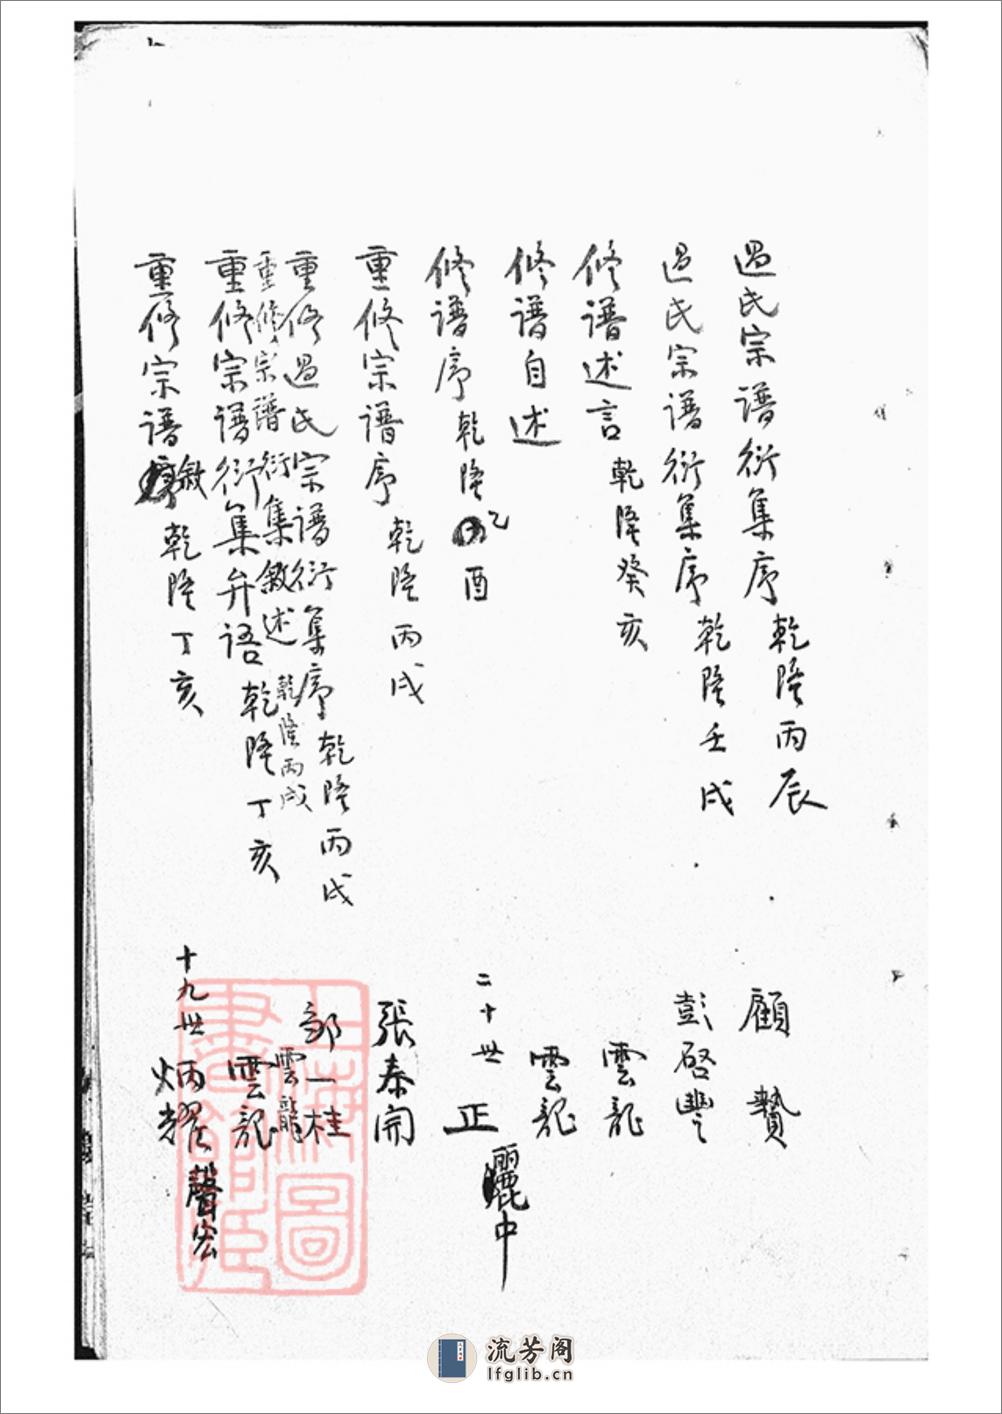 過氏宗譜衍集序 乾隆丙辰 顧贄
過氏宗譜衍集序 乾隆壬戌 彭啓豐
修譜述言 乾隆癸亥 雲龍
修譜自述 雲龍
修譜序 乾隆乙酉 二十世 正 麗中
重修宗譜序 乾隆丙戌 張泰開
重修過氏宗譜衍集序 乾隆丙戌 鄒一桂
重修宗譜衍集敘述 乾隆丙戌 雲龍
重修宗譜衍集弁語 乾隆丁亥 雲龍
重修宗譜敘 乾隆丁亥 十九世 炳耀 聲宏
上海圖書館藏
流芳阁
lfglib.cn